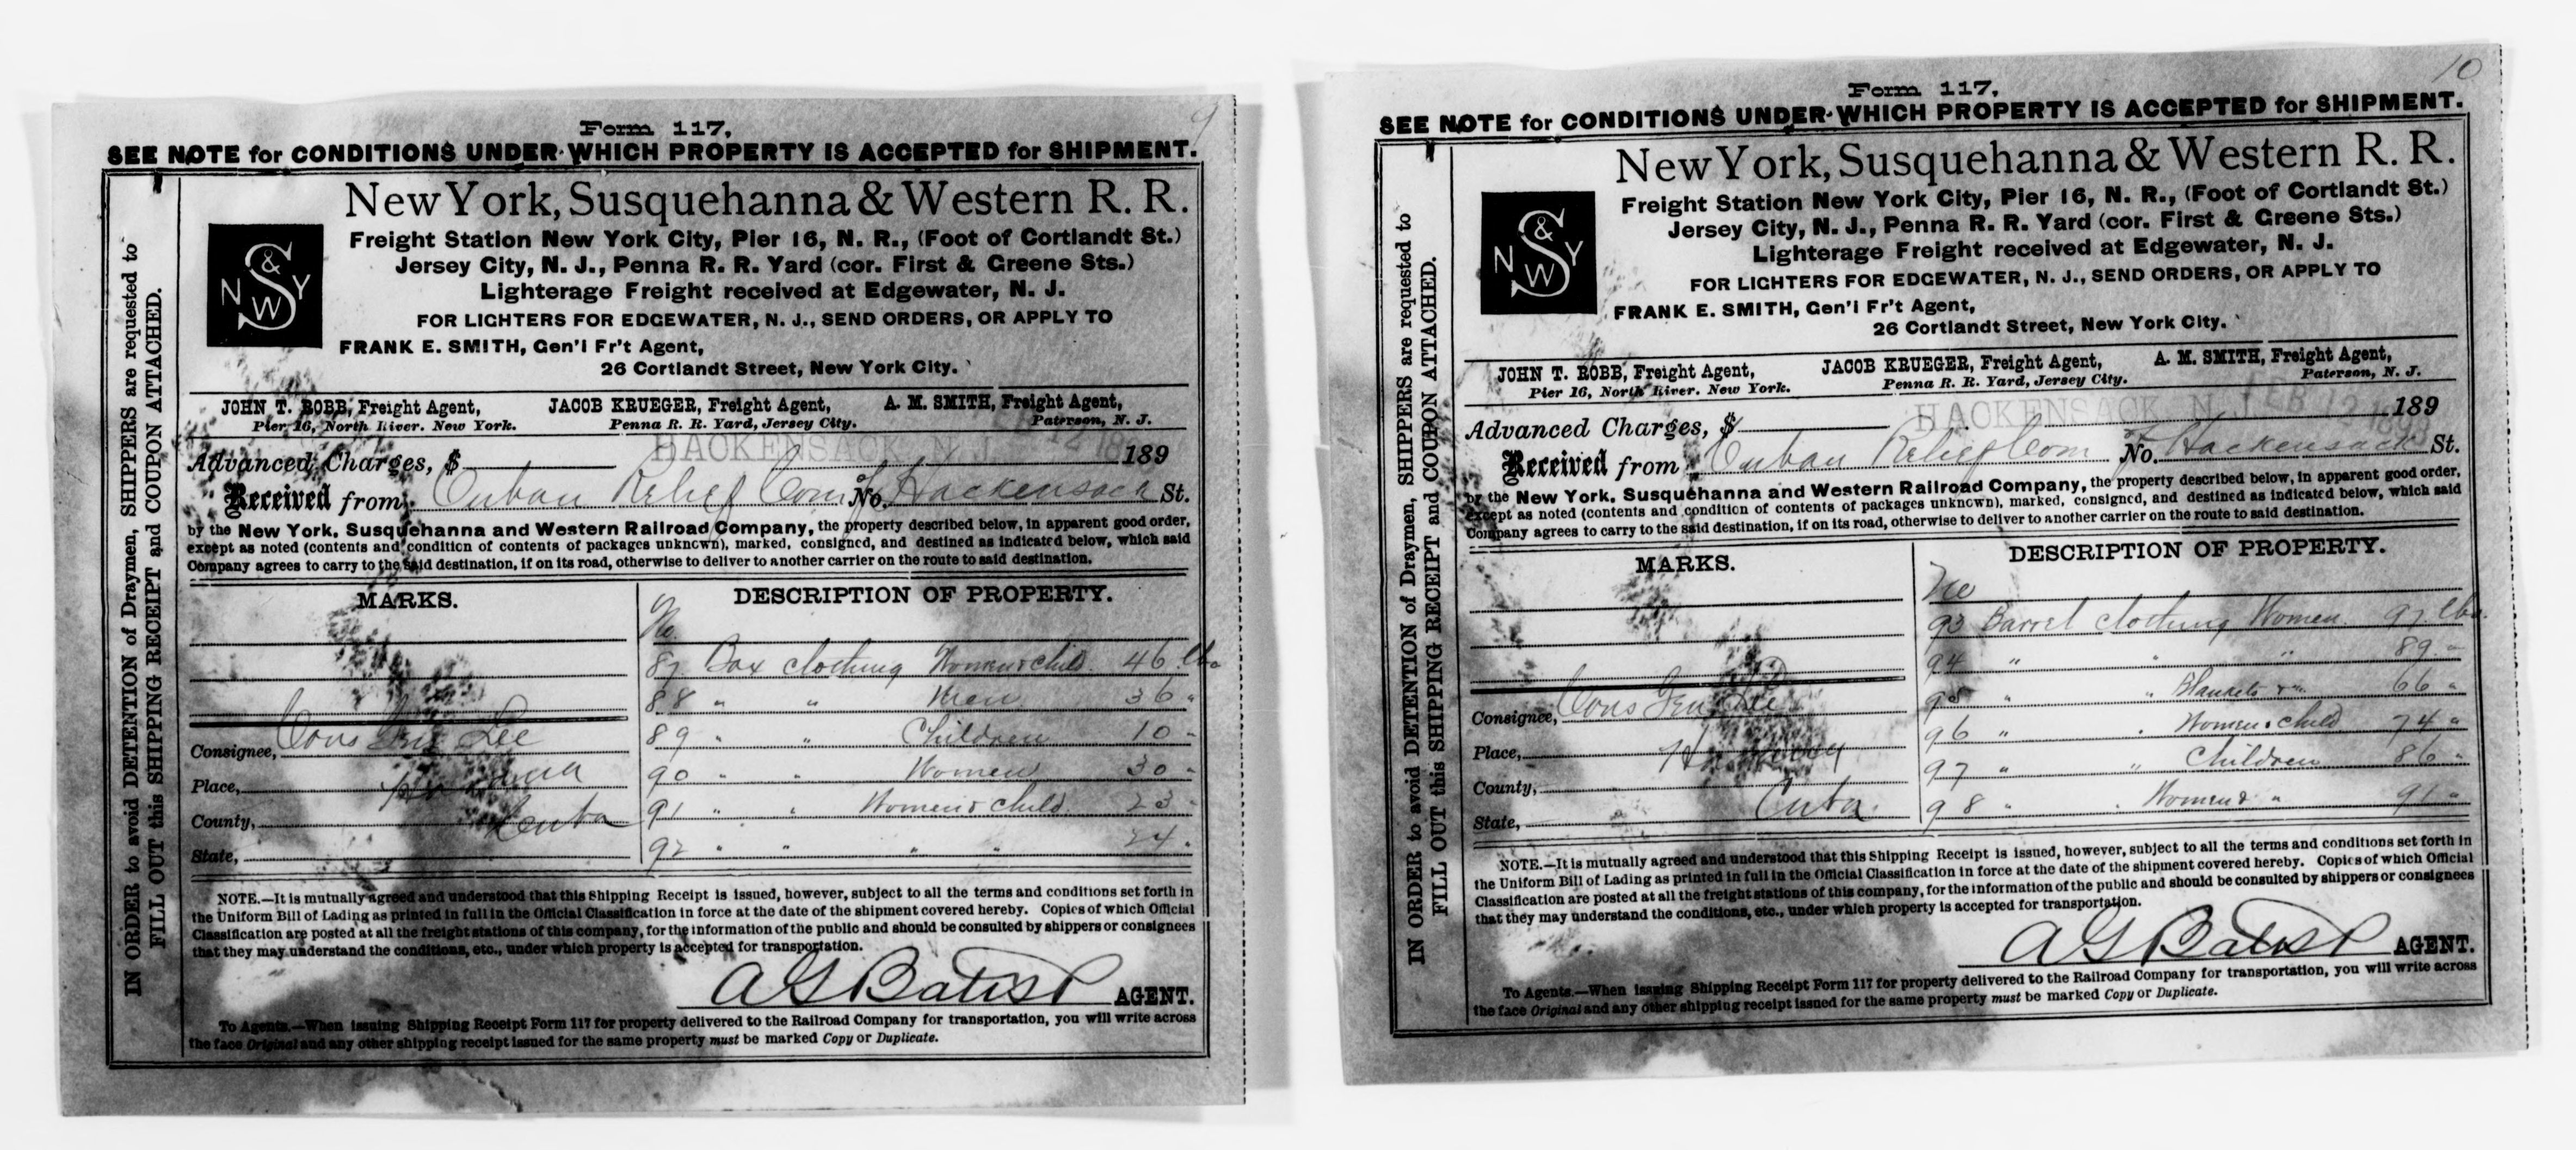 9
Form 117,
SEE NOTE for CONDITIONS UNDER WHICH PROPERTY IS ACCEPTED for SHIPMENT.
IN ORDER to avoid DETENTION of Draymen, SHIPPERS are requested to
FILL OUT this SHIPPING RECEIPT and COUPON ATTACHED.
N Y S & W
New York, Susquehanna & Western R. R.
Freight Station New York City, Pier 16, N. R., (Foot of Cortlandt St.)
Jersey City, N. J., Penna R. R. Yard (cor. First & Greene Sts.)
Lighterage Freight received at Edgewater, N. J.
FOR LIGHTERS FOR EDGEWATER, N. J., SEND ORDERS, OR APPLY TO
FRANK E. SMITH, Gen'l Fr't Agent,
26 Cortlandt Street, New York City.
JOHN T. ROBB, Freight Agent, JACOB KRUEGER, Freight Agent, A. M. SMITH, Freight Agent,
Pier 16, North River. New York. Penna R. R. Yard, Jersey City. Paterson, N. J.
HACKENSACK N. J.
Advanced Charges, $ 189
Received from Cuban Relief Com of No. Hackensack St.
by the New York, Susquehanna and Western Railroad Company, the property described below, in apparent good order,
except as noted (contents and condition of contents of packages unknown), marked, consigned, and destined as indicated below, which said
Company agrees to carry to the said destination, if on its road, otherwise to deliver to another carrier on the route to said destination.
MARKS. DESCRIPTION OF PROPERTY.
No.
87 Box clothing Women & child. 46 lbs
88 " " Men 36 "
89 " " Children 10 "
Consignee, Cons Gen Lee
90 " " Women 30 "
Place, Havana
91 " " Women & child. 23 "
County, Cuba
92 " " " " 24 "
State,
NOTE.—It is mutually agreed and understood that this Shipping Receipt is issued, however, subject to all the terms and conditions set forth in
the Uniform Bill of Lading as printed in full in the Official Classification in force at the date of the shipment covered hereby. Copies of which Official
Classification are posted at all the freight stations of this company, for the information of the public and should be consulted by shippers or consignees
that they may understand the conditions, etc., under which property is accepted for transportation.
A G Batist AGENT.
To Agents.—When issuing Shipping Receipt Form 117 for property delivered to the Railroad Company for transportation, you will write across
the face Original and any other shipping receipt issued for the same property must be marked Copy or Duplicate.
10
Form 117,
SEE NOTE for CONDITIONS UNDER WHICH PROPERTY IS ACCEPTED for SHIPMENT.
IN ORDER to avoid DETENTION of Draymen, SHIPPERS are requested to
FILL OUT this SHIPPING RECEIPT and COUPON ATTACHED.
N Y S & W
New York, Susquehanna & Western R. R.
Freight Station New York City, Pier 16, N. R., (Foot of Cortlandt St.)
Jersey City, N. J., Penna R. R. Yard (cor. First & Greene Sts.)
Lighterage Freight received at Edgewater, N. J.
FOR LIGHTERS FOR EDGEWATER, N. J., SEND ORDERS, OR APPLY TO
FRANK E. SMITH, Gen'l Fr't Agent,
26 Cortlandt Street, New York City.
JOHN T. ROBB, Freight Agent, JACOB KRUEGER, Freight Agent, A. M. SMITH, Freight Agent,
Pier 16, North River. New York. Penna R. R. Yard, Jersey City. Paterson, N. J.
HACKENSACK N. J. FEB 12 1898
Advanced Charges, $ 189
Received from Cuban Relief Com of No. Hackensack St.
by the New York, Susquehanna and Western Railroad Company, the property described below, in apparent good order,
except as noted (contents and condition of contents of packages unknown), marked, consigned, and destined as indicated below, which said
Company agrees to carry to the said destination, if on its road, otherwise to deliver to another carrier on the route to said destination.
MARKS. DESCRIPTION OF PROPERTY.
No
93 Barrel clothing Women 97 lbs.
94 " " " 89 "
95 " " Blankets & " 66 "
Consignee, Cons Gen Lee
96 " " Women & child 74 "
Place, Havana
97 " " Children 86 "
County,
98 " " Women & " 91 "
State, Cuba.
NOTE.—It is mutually agreed and understood that this Shipping Receipt is issued, however, subject to all the terms and conditions set forth in
the Uniform Bill of Lading as printed in full in the Official Classification in force at the date of the shipment covered hereby. Copies of which Official
Classification are posted at all the freight stations of this company, for the information of the public and should be consulted by shippers or consignees
that they may understand the conditions, etc., under which property is accepted for transportation.
A G Batist AGENT.
To Agents.—When issuing Shipping Receipt Form 117 for property delivered to the Railroad Company for transportation, you will write across
the face Original and any other shipping receipt issued for the same property must be marked Copy or Duplicate.